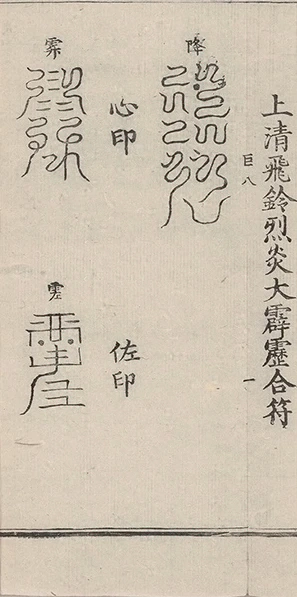 上清飛鈴烈炎大霹靂合符
巨八
一
降
心印
佐印